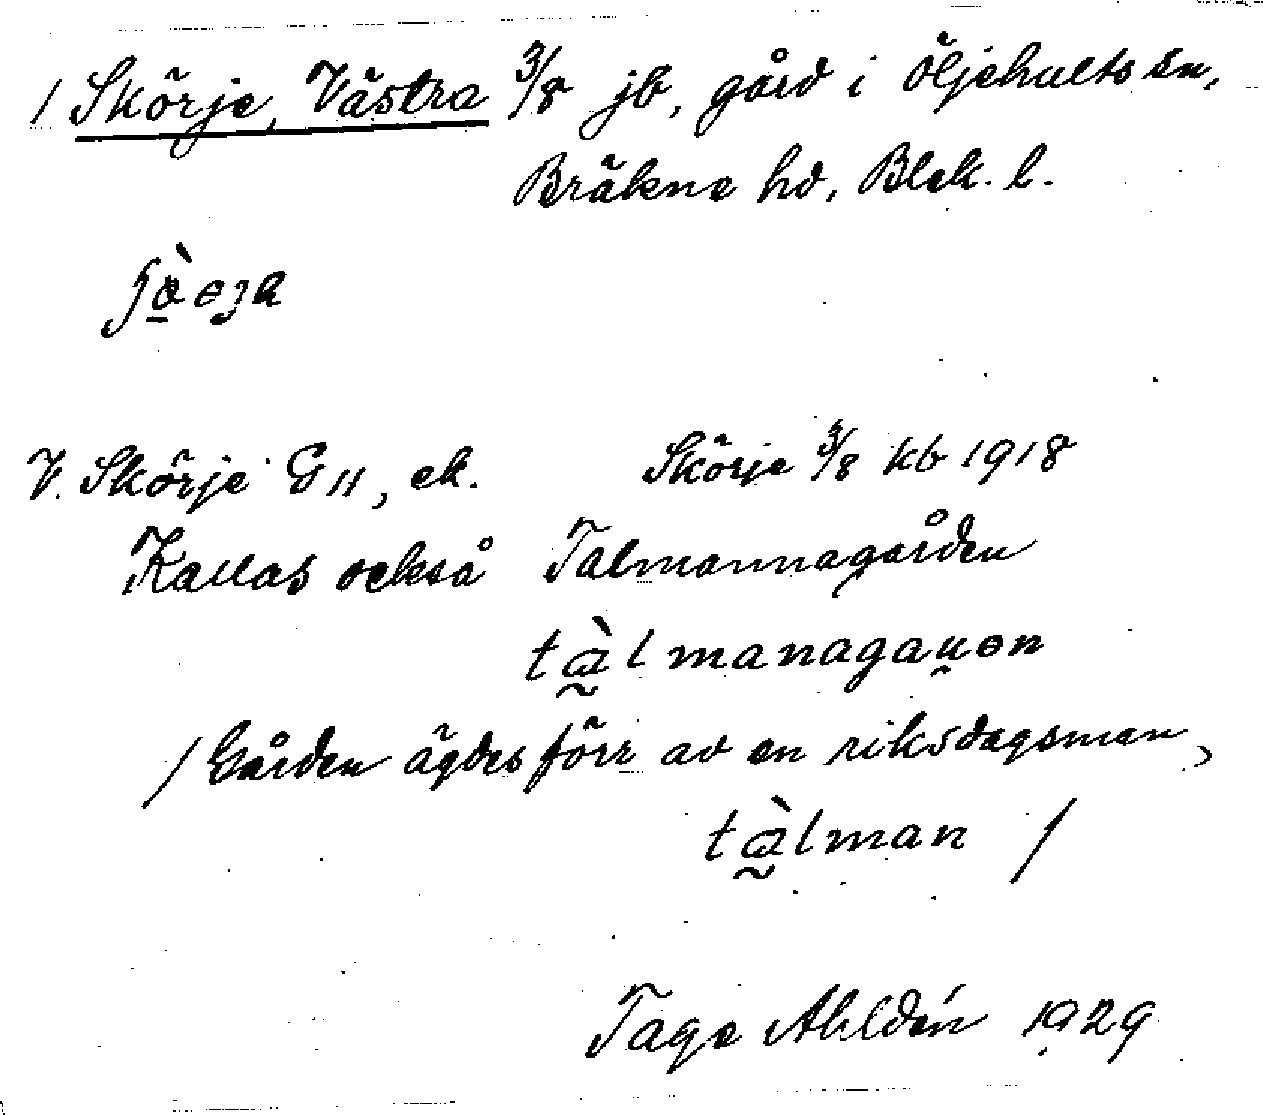 / Skörje, Västra 3/8 jb, gård i Öljehults sn,
Bräkne hd, Blek. l.
V. Skörje G 11, ek. Skörje 3/8 kb 1918
Kallas också Talmannagården
/ Gården ägdes förr av en riksdagsman,
tàlman /
Tage Ahldén 1929